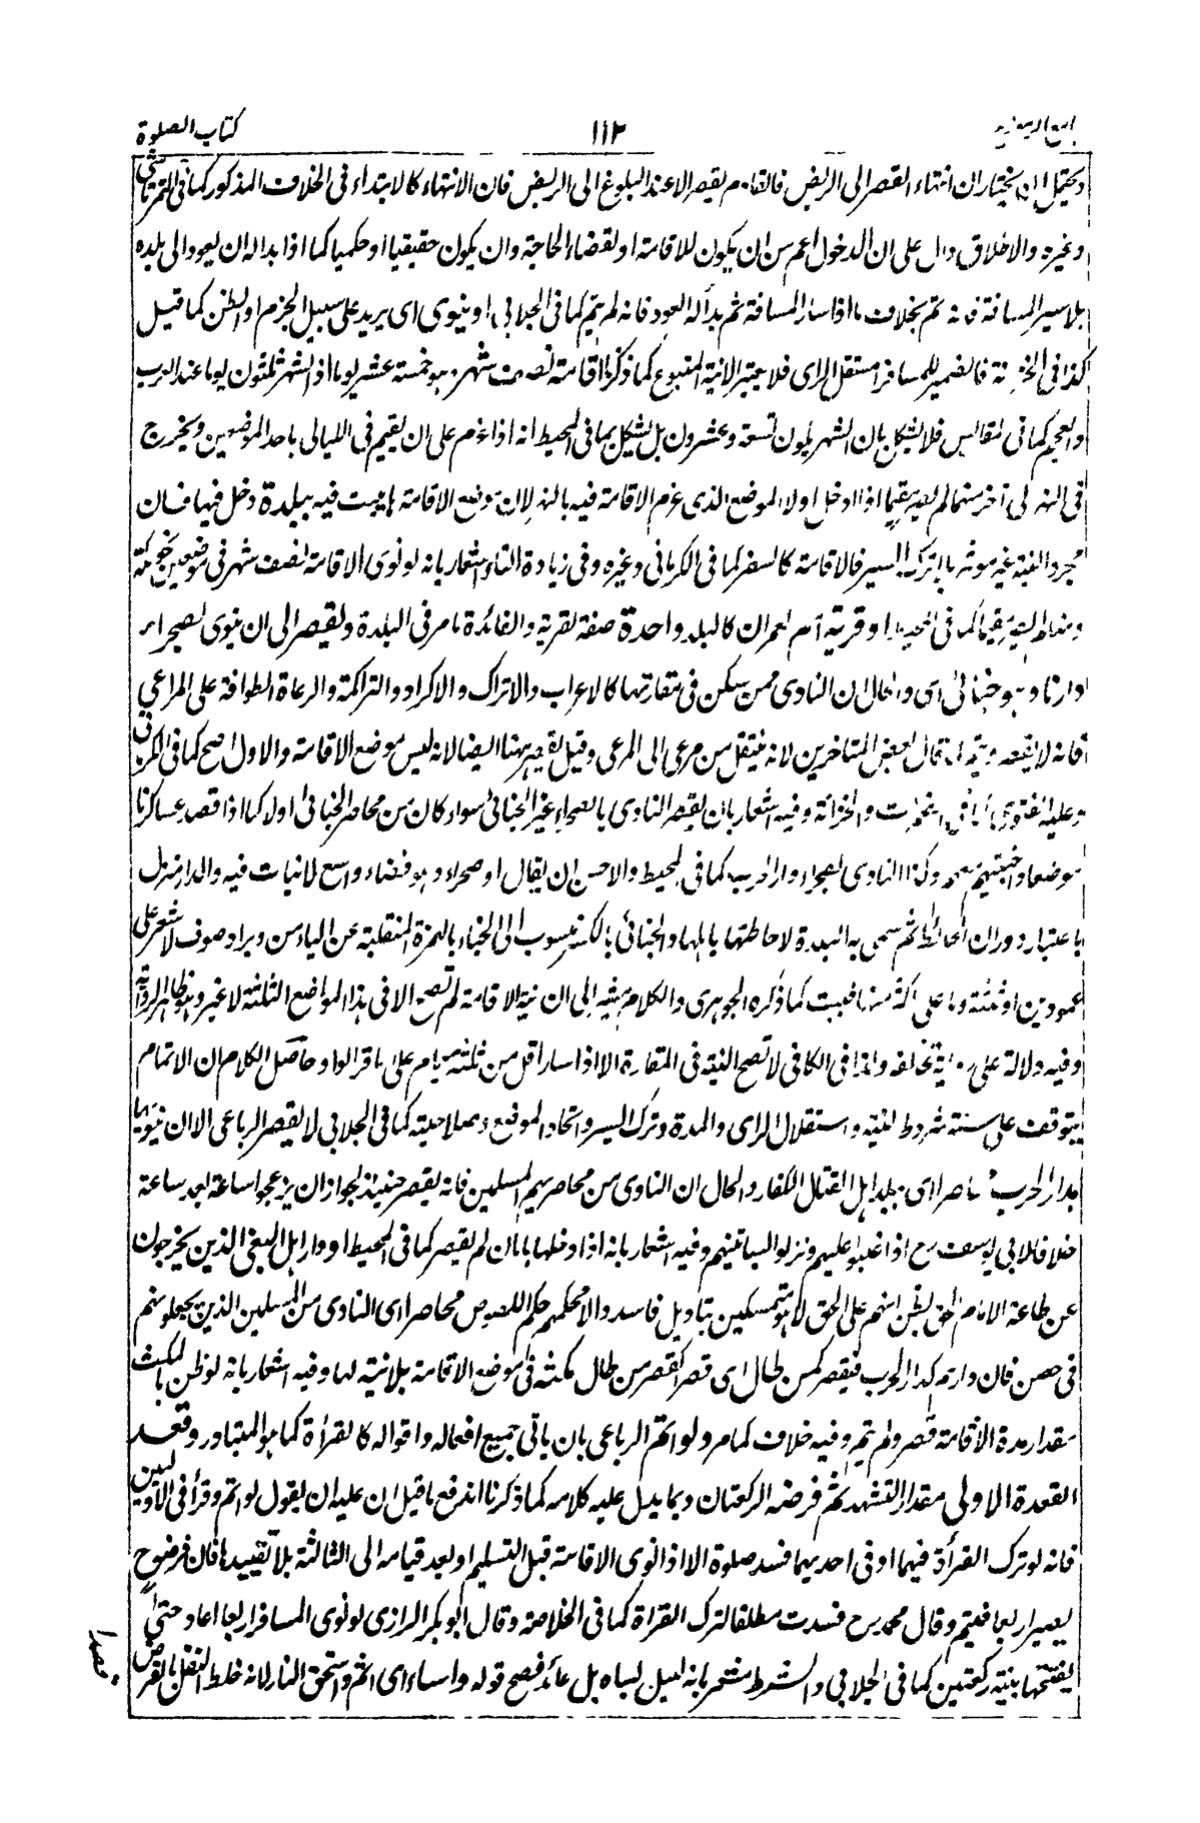 كتاب الصلوة
١١٢
جامع الرموز
ويحتمل ان يختار ان انتهاء القصر الى الربض فالقادم يقصر الا عند البلوغ الى الربض فان الانتهاء كالابتداء فى الخلاف المذكور كما فى التمرتاشى
وغيره والاطلاق دال على ان الدخول اعم من ان يكون للاقامة او لقضاء الحاجة وان يكون حقيقيا او حكميا كما اذا بدا له ان يعود الى بلده
بلا سير المسافة فانه تم بخلاف ما اذا سار المسافة ثم بدأ له العود فانه لم يتم كما فى الجلابى او ينوى اى يريد على سبيل الجزم او الظن كما قيل
كذا فى الخزانة فالضمير للمسافر مستقل الراى فلا يعتبر الا نية المتبوع كما ذكرنا اقامة نصف شهر وهو خمسة عشر يوما اذ الشهر ثلثون يوما عند العرب
والعجم كما فى المقاييس فلا يشكل بان الشهر يكون تسعة وعشرون بل يشكل بما فى المحيط انه اذا عزم على ان يقيم فى الليالى باحد الموضعين ويخرج
فى النهار الى آخر منهما لم يصر مقيما اذا دخل اولا الموضع الذى عزم الاقامة فيه بالنهار لان موضع الاقامة ما يبيت فيه ببلدة دخل فيها فان
مجرد النية غير موثر ما لم يترك السير فالاقامة كالسفر كما فى الكرمانى وغيره وفى زيادة التاء اشعار بانه لو نوى الاقامة نصف شهر فى موضعين كمكة
ومنا لم يصر مقيما كما فى المحيط او قرية اسم لعمران كالبلد واحدة صفة لقرية والفائدة ما مر فى البلدة ويقصر الى ان ينوى بصحراء
دارنا وهو خبائى اى والحال ان الناوى ممن يسكن فى مفازتها كالاعراب والاتراك والاكراد والتراكمة والرعاة الطوافة على المراعى
فانه لا يقصر ويتم اذ قال بعض المتاخرين لانه ينتقل من مرعى الى المرعى وقيل يقصر ههنا ايضا لانه ليس موضع الاقامة والاول اصح كما فى الكرمانى
وعليه الفتوى كما فى المضمرات والخزانة وفيه اشعار بان يقصر الناوى بالصحراء غير الخبائى سواء كان من محاصر الخبائى اولا كما اذا قصد عساكرنا
موضعا واخبيتهم معهم وكذا الناوى بصحراء دار الحرب كما فى المحيط والاحسن ان يقال او صحراء وهو فضاء واسع لا نبات فيه والدار منزل
باعتبار دوران الحائط ثم سمى به البلدة لاحاطتها باهلها والخبائى بالكسر منسوب الى الخباء بالهمزة المنقلبة عن الياء من وبر او صوف لا شعر على
عمودين او ثلثة وما على اكثر منها فبيت كما ذكره الجوهرى والكلام مشير الى ان نية الاقامة لم تصح الا فى هذا المواضع الثلثة لا غير وهو ظاهر الرواية
وفيه دلالة على رواية تخالفه ولذا فى الكافى لا تصح النية فى المفازة الا اذا سار اقل من ثلثة ايام على ما قالوا وحاصل الكلام ان الاتمام
يتوقف على ستة شروط النية واستقلال الراى والمدة وترك السير واتحاد الموضع وصلاحيته كما فى الجلابى لا يقصر الرباعى الا ان ينويها
بدار الحرب محاصرا اى ببلد اهل القتال الكفار والحال ان الناوى من محاصريهم المسلمين فانه يقصر حينئذ لجواز ان يزعجوا ساعة بعد ساعة
خلافا لابى يوسف رح اذا غلبوا عليهم ونزلوا بساتينهم وفيه اشعار بانه اذا دخلها بامان لم يقصر كما فى المحيط او دار اهل البغى الذين يخرجون
عن طاعة الامام الحق بظن انهم على الحق لا هو متمسكين بتاويل فاسد والا فحكمهم حكم اللصوص محاصرا اى الناوى من المسلمين الذين يجعلونهم
فى حصن فان دارهم كدار الحرب فيقصر كمن طال اى قصر كقصر من طال مكثه فى موضع الاقامة بلا نية لها وفيه اشعار بانه لو ظن المكث
مقدار مدة الاقامة قصر ولم يتم وفيه خلاف كما مر ولو اتم الرباعى بان ياتى جميع افعاله واقواله كالقرأة كما هو المتبادر وقعد
القعدة الاولى مقدار التشهد تم فرضه الركعتان وبما يدل عليه كلامه كما ذكرنا اندفع ما قيل ان عليه ان يقول لو اتم وقرأ فى الاوليين
فانه لو ترك القرأة فيهما او فى احديهما فسد صلوة الا اذا نوى الاقامة قبل التسليم او بعد قيامه الى الثالثة بلا تقييدها فان فرضه ح
يصير اربعا فيتم وقال محمد رح فسدت مطلقا لترك القراة كما فى الخلاصة وقال ابو بكر الرازى لو نوى المسافر اربعا اعاد حتى
يفتتحها بنية ركعتين كما فى الجلابى والشرط مشعر بانه ليس لساه بل عائد فصح قوله واساء اى اثم واستحق النار لانه خلط النفل بالفرض
قصدا